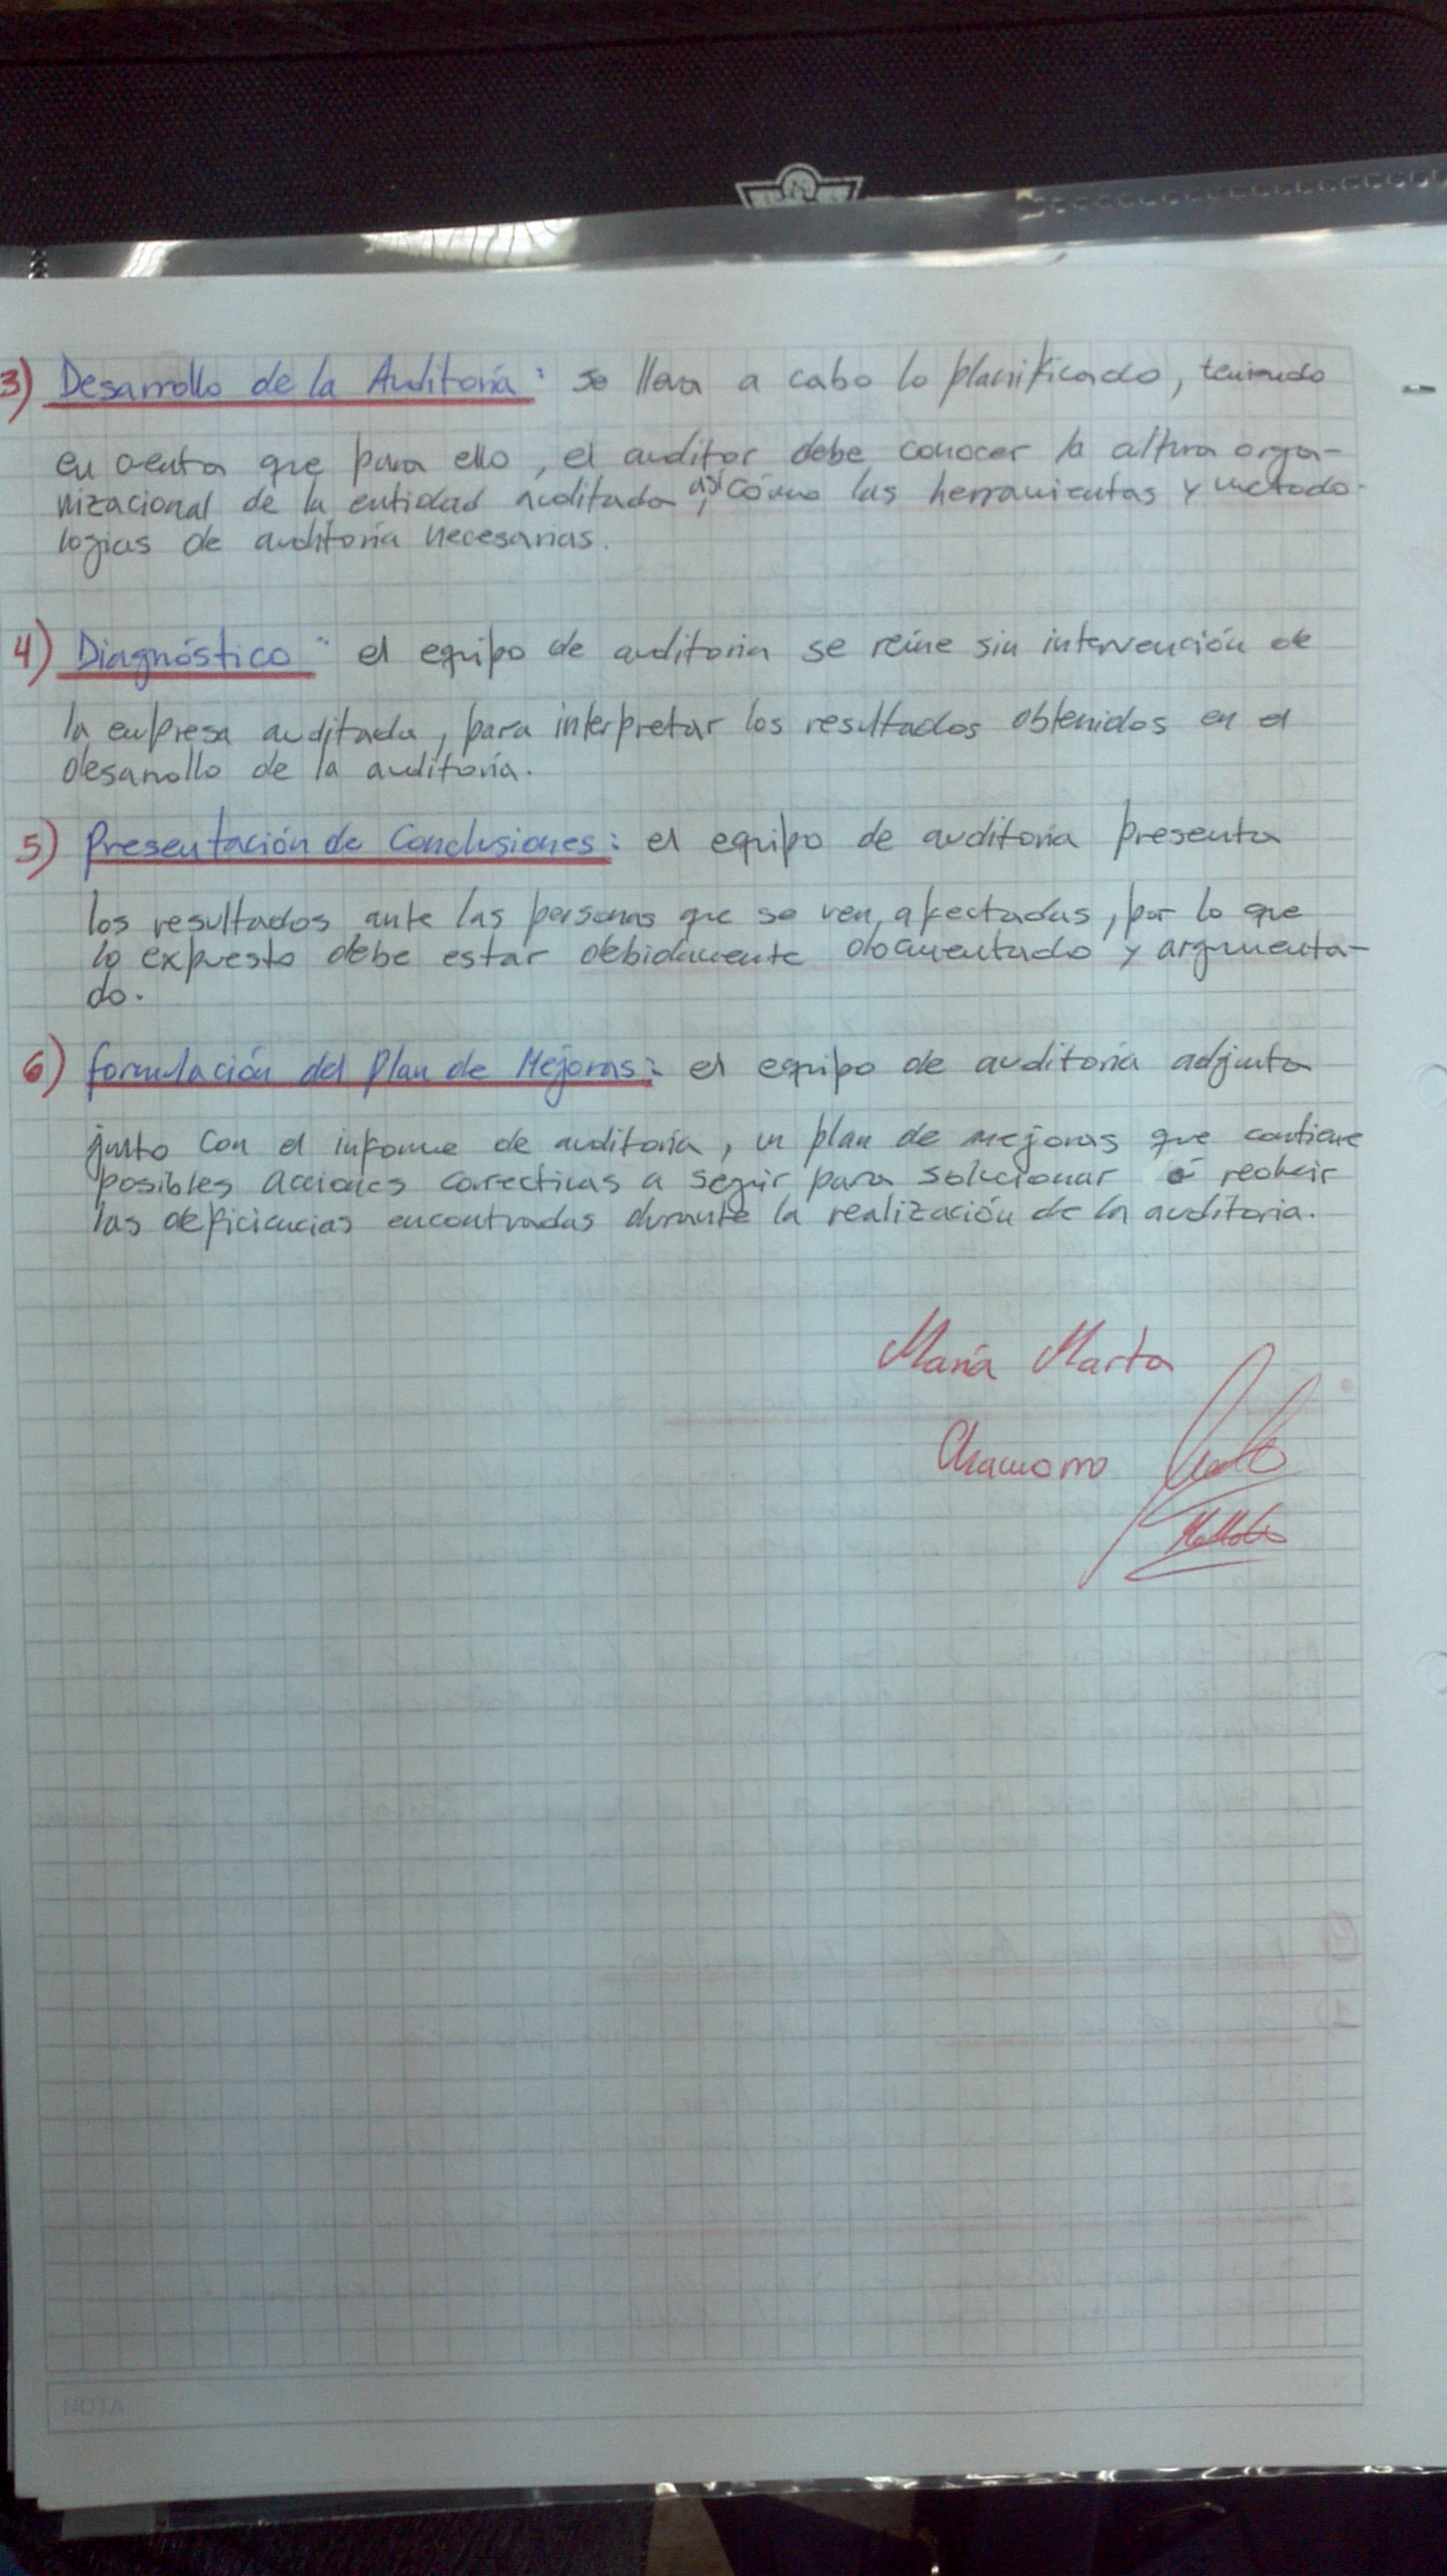 3) Desarrollo de la Auditoría: se lleva a cabo lo planificado, teniendo
en cuenta que para ello, el auditor debe conocer la altura orga-
nizacional de la entidad auditada, así cómo las herramientas y metodo-
logias de auditoría necesarias.
4) Diagnóstico: el equipo de auditoria se reúne sin intervención de
la empresa auditada, para interpretar los resultados obtenidos en el
desarrollo de la auditoría.
5) Presentación de Conclusiones: el equipo de auditoría presenta
los resultados ante las personas que se ven, afectadas, por lo que
lo expuesto debe estar debidamente documentado y argumenta-
do.
6) formulación del Plan de Mejoras: el equipo de auditoría adjunta
junto con el informe de auditoría, un plan de mejoras que contiene
posibles acciones correctivas a seguir para solucionar ó reducir
las deficiencias encontradas durante la realización de la auditoria.
María Marta
Chamorro
NOTA